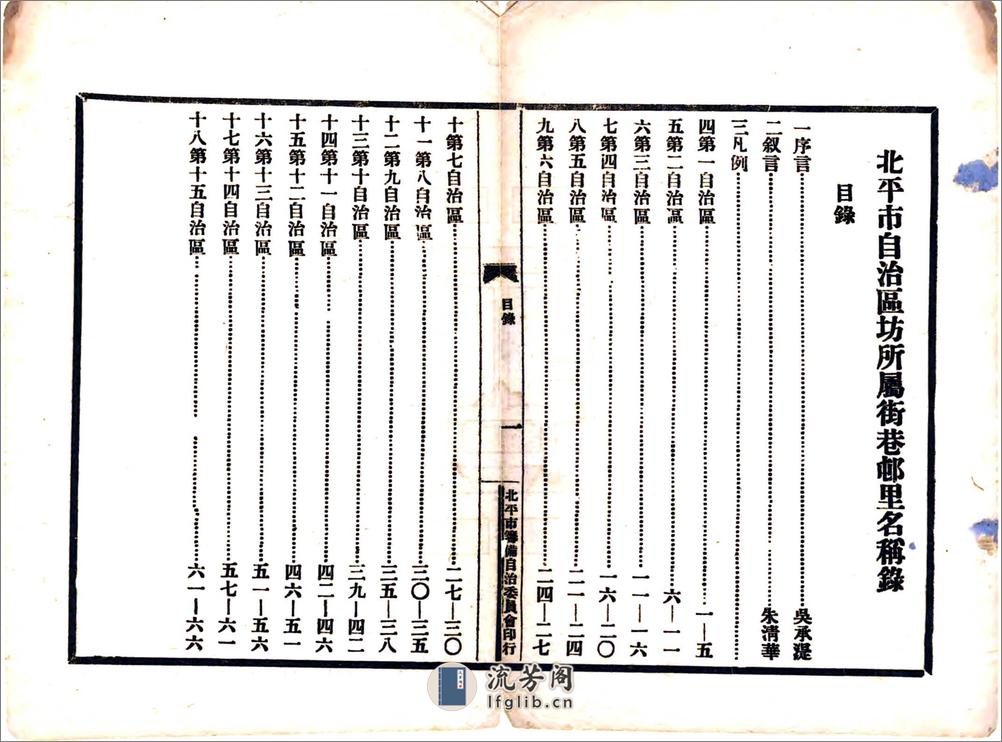 北平市自治區坊所屬街巷邨里名稱錄
目錄
一序言……吳承湜
二叙言……朱清華
三凡例……
四第一自治區……一—五
五第二自治區……六—一一
六第三自治區……一一—一六
七第四自治區……一六—二〇
八第五自治區……二一—二四
九第六自治區……二四—二七
目錄
一
北平市籌備自治委員會印行
十第七自治區……二七—三〇
十一第八自治區……三〇—三五
十二第九自治區……三五—三八
十三第十自治區……三九—四二
十四第十一自治區……四二—四六
十五第十二自治區……四六—五一
十六第十三自治區……五一—五六
十七第十四自治區……五七—六一
十八第十五自治區……六一—六六
流芳阁
lfglib.cn